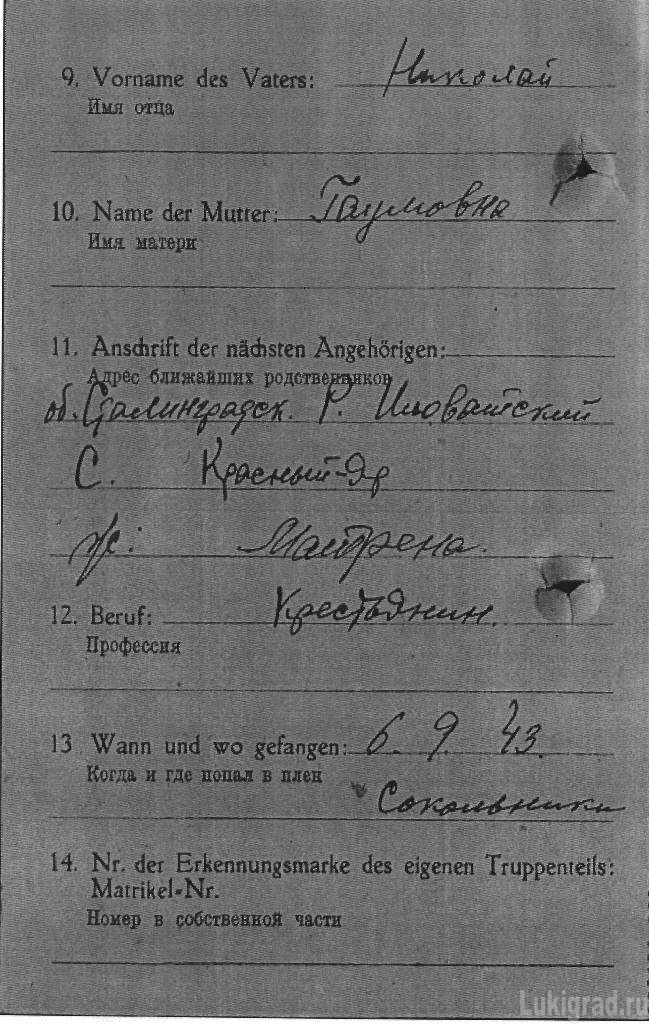 9. Vorname des Vaters: Николай
Имя отца
10. Name der Mutter: Гаумовна
Имя матери
11. Anschrift der nächsten Angehörigen:
Адрес ближайших родственников
об. Сталинградск. Р. Иловатский
С. Красный-Яр
ж: Матрена.
12. Beruf: Крестьянин.
Профессия
13 Wann und wo gefangen: 6. 9. 43.
Когда и где попал в плен
Сокольники
14. Nr. der Erkennungsmarke des eigenen Truppenteils:
Matrikel-Nr.
Номер в собственной части
Lukigrad.ru